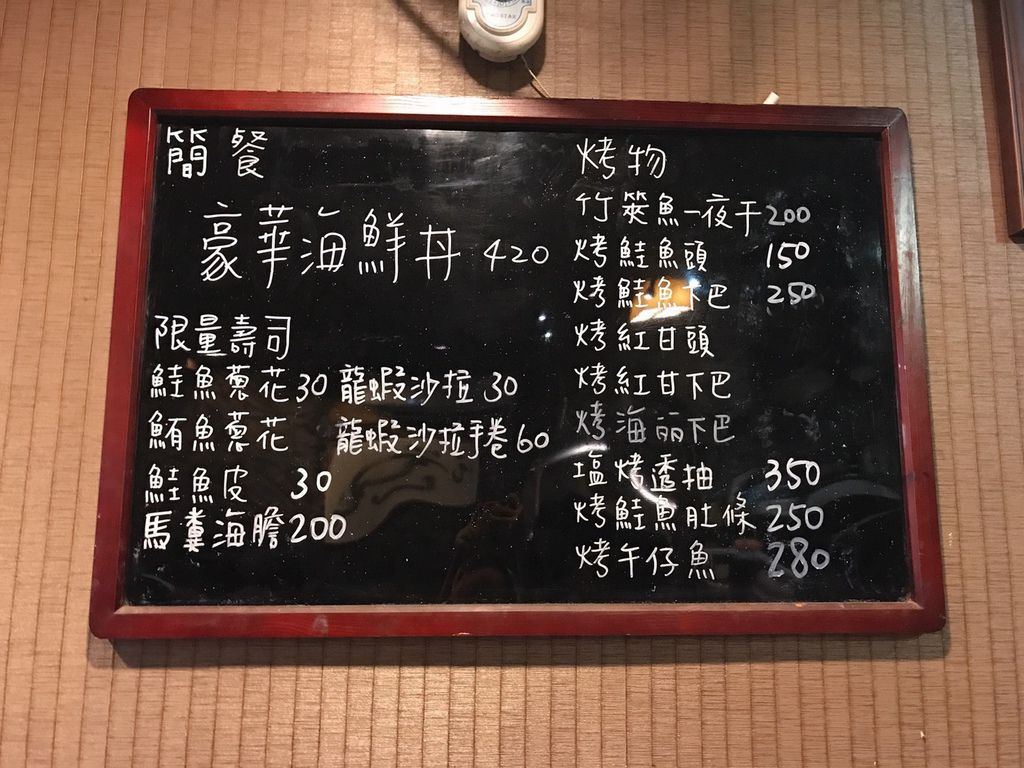 簡餐
豪華海鮮丼 420
限量壽司
鮭魚蔥花30 龍蝦沙拉 30
鮪魚蔥花 龍蝦沙拉手卷60
鮭魚皮 30
馬糞海膽200
烤物
竹筴魚一夜干200
烤鮭魚頭 150
烤鮭魚下巴 250
烤紅甘頭
烤紅甘下巴
烤海丽下巴
塩烤透抽 350
烤鮭魚肚條 250
烤午仔魚 280